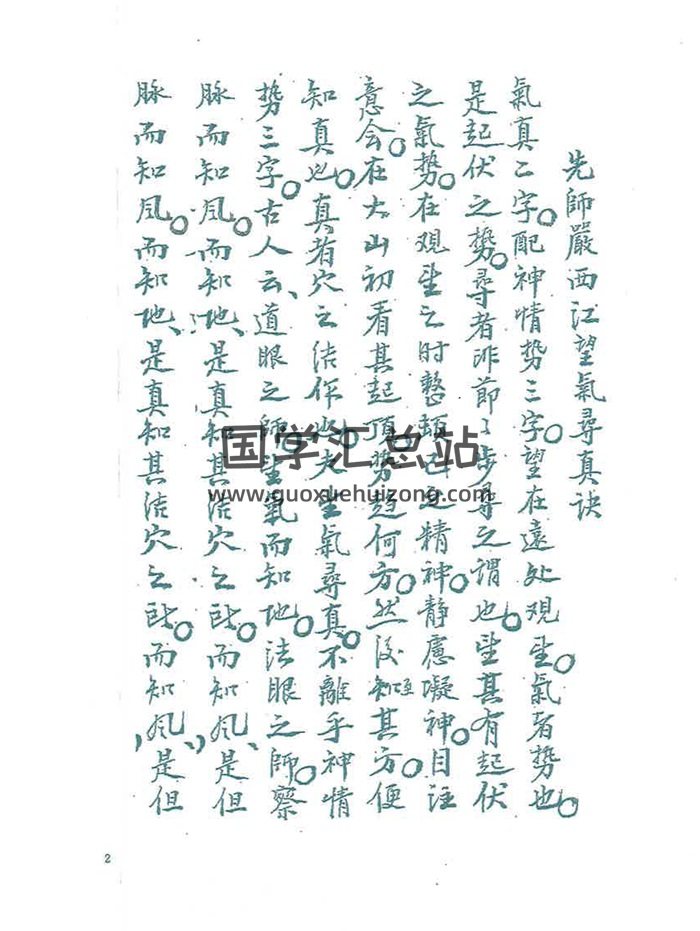 先師嚴西江望氣尋真訣
氣真二字。配神情势三字。望在遠处观望。氣者势也。
是起伏之势。尋者非節〻步尋之谓也。望其有起伏
之氣势。在观望之时整頓己之精神。静慮凝神。目注
意会。在大山初看其起頂势趋何方。然後知其方。便
知真也。真者穴之结作也。夫望氣尋真。不離乎神情
势三字。古人云、道眼之師。望氣而知地。法眼之師。察
脉而知风。而知地、是真知其结穴之所。而知风、是但
脉而知风。而知地、是真知其结穴之所。而知风、是但
国学汇总站
www.guoxuehuizong.com
2